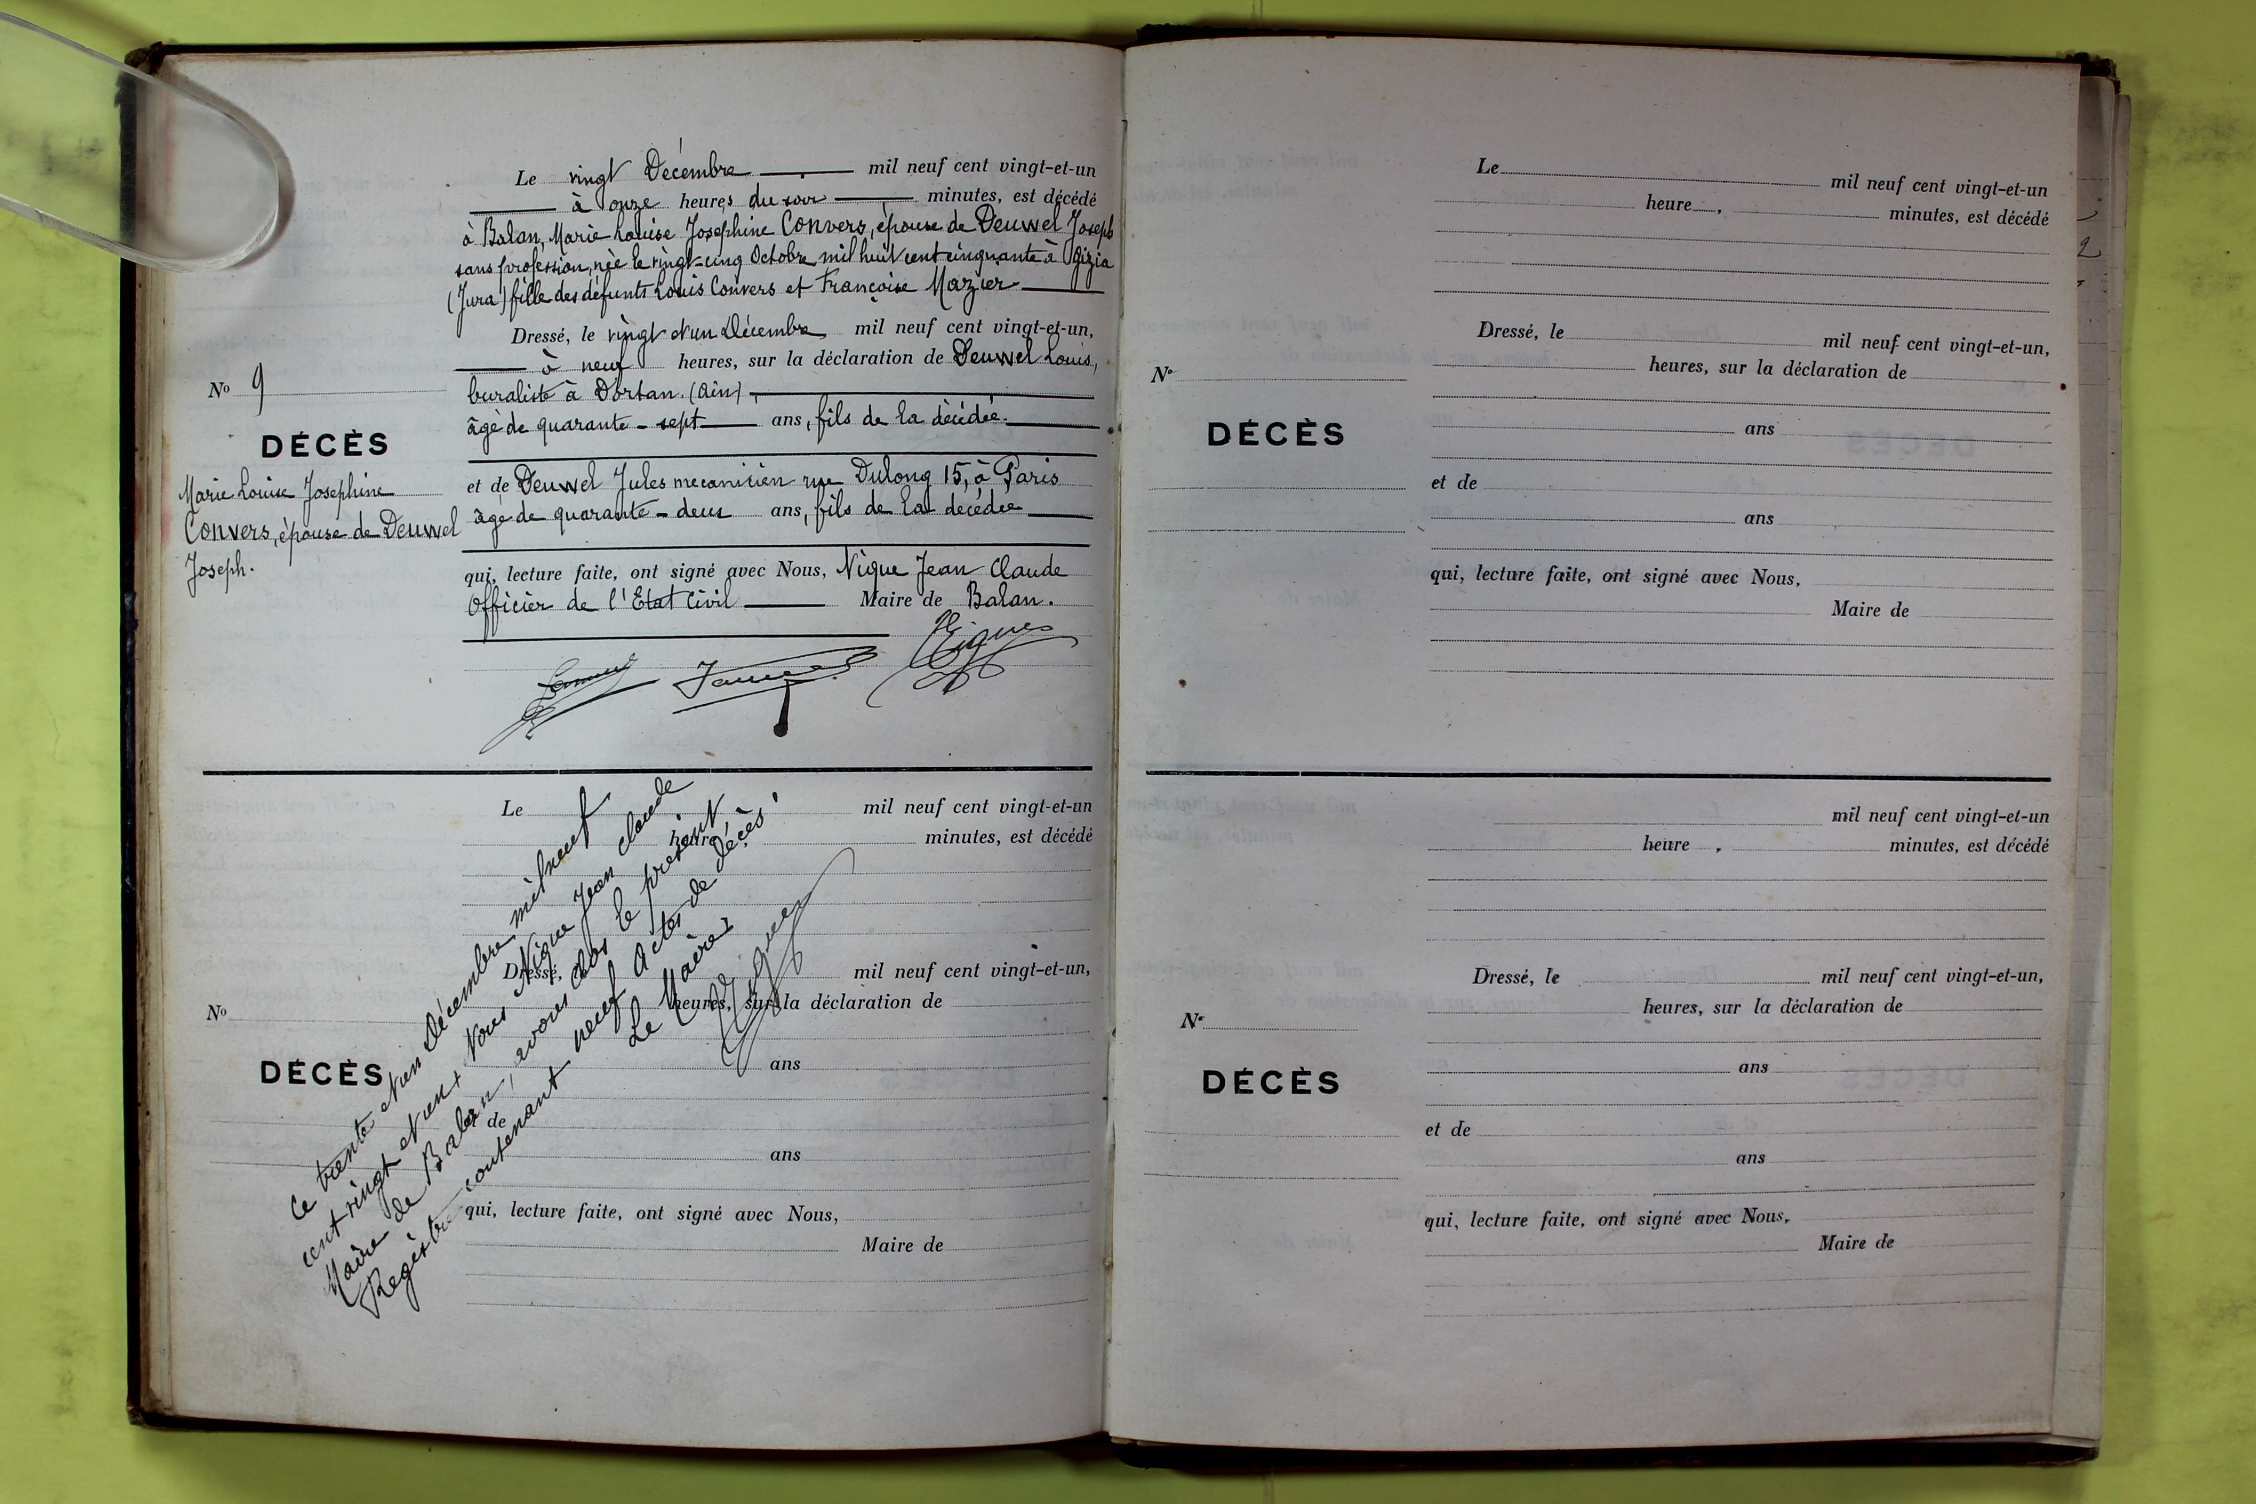 Le vingt Décembre mil neuf cent vingt-et-un
à onze heures du soir minutes, est décédé
à Balan, Marie Louise Josephine Convers, épouse de Deuwel Joseph
sans profession, née le vingt-cinq Octobre mil huit cent cinquante à Gizia
(Jura) fille des défunts Louis Convers et Françoise Mazier
Dressé, le vingt et un Décembre mil neuf cent vingt-et-un,
à neuf heures, sur la déclaration de Deuwel Louis,
buraliste à Dortan. (Ain),
âgé de quarante-sept ans, fils de la décédée.
et de Deuwel Jules mecanicien rue Dulong 15, à Paris
âgé de quarante-deux ans, fils de la décédée
qui, lecture faite, ont signé avec Nous, Nique Jean Claude
Officier de l'Etat Civil Maire de Balan.
No 9
DÉCÈS
Marie Louise Josephine
Convers, épouse de Deuwel
Joseph.
Le mil neuf cent vingt-et-un
heure minutes, est décédé
Dressé, mil neuf cent vingt-et-un,
heures, sur la déclaration de
No
DÉCÈS
ans
et de
ans
qui, lecture faite, ont signé avec Nous,
Maire de
Ce trente et un Décembre mil neuf
cent vingt et un, Nous Nique Jean Claude
Maire de Balan, avons clos le présent
Registre contenant neuf Actes de décès
Le Maire
Le mil neuf cent vingt-et-un
heure , minutes, est décédé
Dressé, le mil neuf cent vingt-et-un,
heures, sur la déclaration de
No
DÉCÈS
ans
et de
ans
qui, lecture faite, ont signé avec Nous,
Maire de
mil neuf cent vingt-et-un
heure , minutes, est décédé
Dressé, le mil neuf cent vingt-et-un,
heures, sur la déclaration de
No
DÉCÈS
ans
et de
ans
qui, lecture faite, ont signé avec Nous,
Maire de